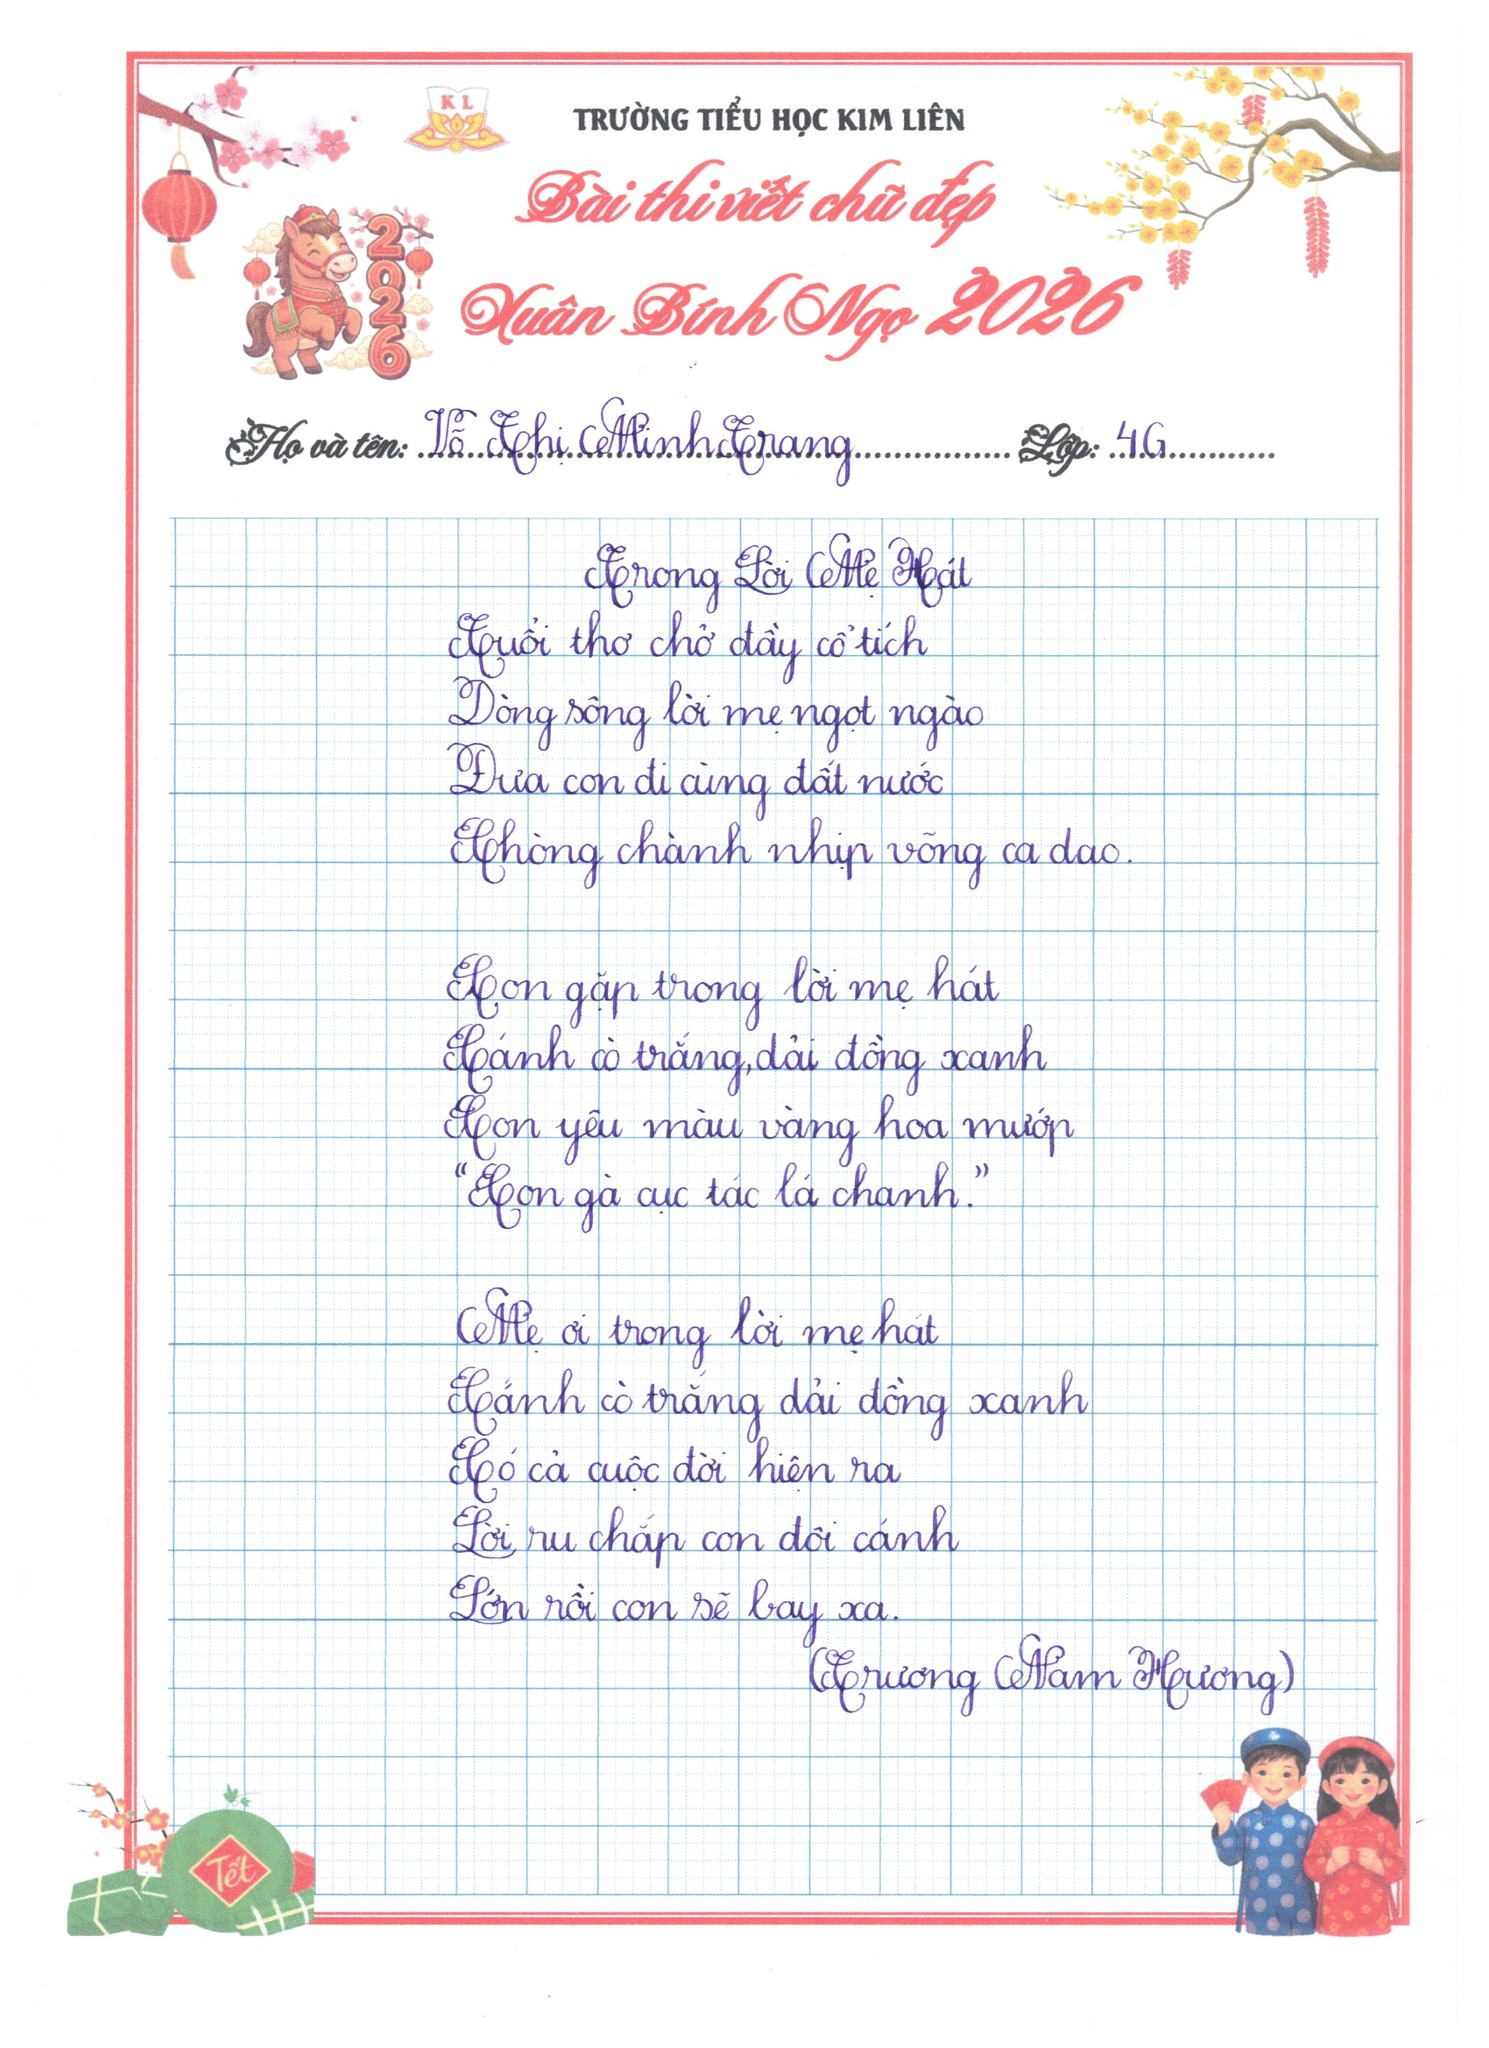 K L
TRƯỜNG TIỂU HỌC KIM LIÊN
Bài thi viết chữ đẹp
Xuân Bính Ngọ 2026
2026
Họ và tên: Võ Thị Minh Trang Lớp: 4G
Trong Lời Mẹ Hát
Tuổi thơ chở đầy cổ tích
Dòng sông lời mẹ ngọt ngào
Đưa con đi cùng đất nước
Chòng chành nhịp võng ca dao.
Con gặp trong lời mẹ hát
Cánh cò trắng, dải đồng xanh
Con yêu màu vàng hoa mướp
“Con gà cục tác lá chanh.”
Mẹ ơi trong lời mẹ hát
Cánh cò trắng dải đồng xanh
Có cả cuộc đời hiện ra
Lời ru chắp con đôi cánh
Lớn rồi con sẽ bay xa.
(Trương Nam Hương)
Tết